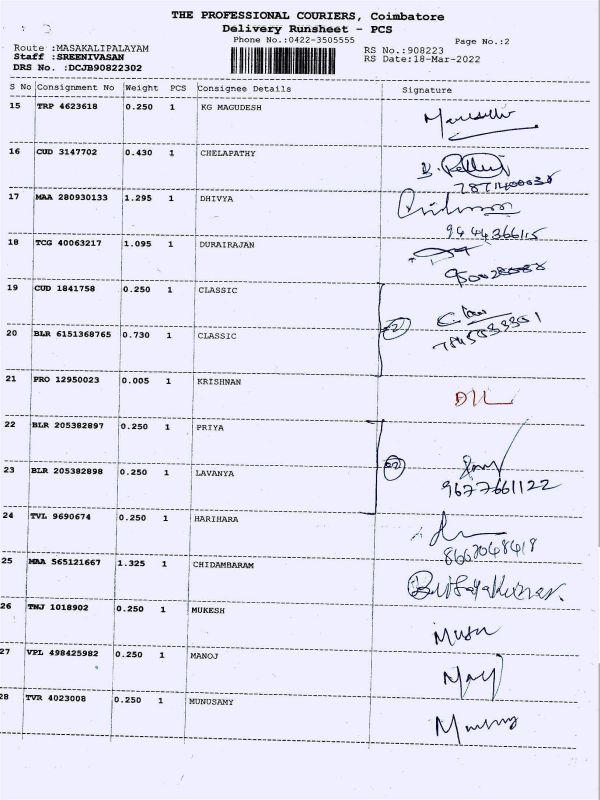 THE PROFESSIONAL COURIERS, Coimbatore
Delivery Runsheet - PCS
Phone No.:0422-3505555 Page No.:2
Route :MASAKALIPALAYAM RS No.:908223
Staff :SREENIVASAN RS Date:18-Mar-2022
DRS No. :DCJB90822302
S No Consignment No Weight PCS Consignee Details Signature
15 TRP 4623618 0.250 1 KG MAGUDESH
16 CUD 3147702 0.430 1 CHELAPATHY
17 MAA 280930133 1.295 1 DHIVYA
9444366115
18 TCG 40063217 1.095 1 DURAIRAJAN
19 CUD 1841758 0.250 1 CLASSIC
20 BLR 6151368765 0.730 1 CLASSIC
21 PRO 12950023 0.005 1 KRISHNAN
22 BLR 205382897 0.250 1 PRIYA
23 BLR 205382898 0.250 1 LAVANYA
9677661122
24 TVL 9690674 0.250 1 HARIHARA
25 MAA 565121667 1.325 1 CHIDAMBARAM
26 TNJ 1018902 0.250 1 MUKESH
27 VPL 498425982 0.250 1 MANOJ
28 TVR 4023008 0.250 1 MUNUSAMY